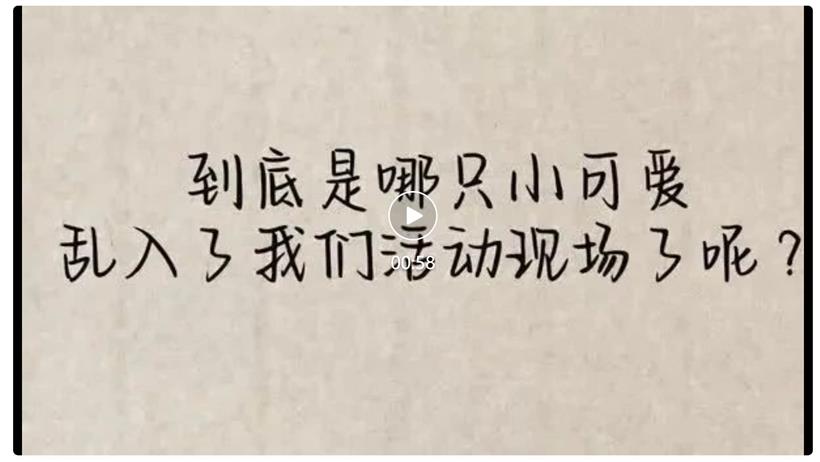 到底是哪只小可爱
乱入了我们活动现场了呢？
00:58